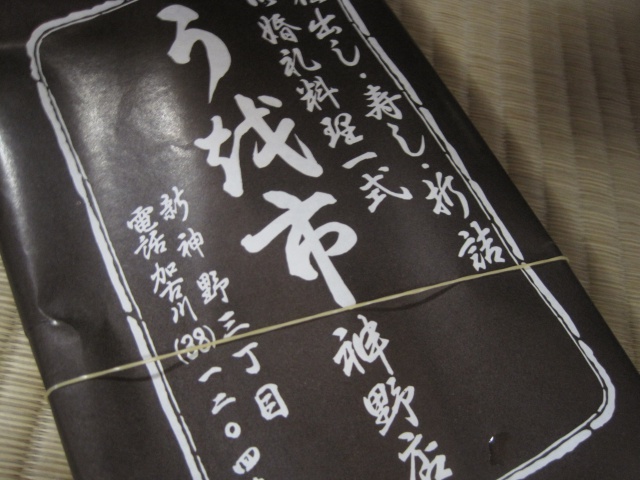 出し・寿し・折詰
婚礼料理一式
うを市
神野店
新神野三丁目
電話加古川(38)一二〇四